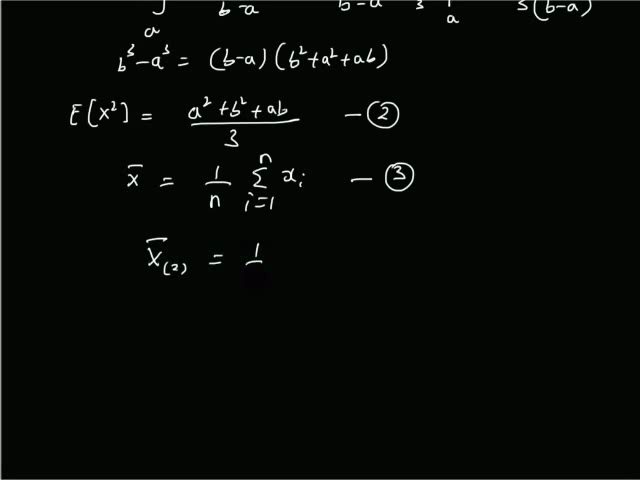 a b-a b-a 3 a 3(b-a)
b³-a³ = (b-a)(b²+a²+ab)
E[X²] = a²+b²+ab / 3 — ②
x̄ = 1/n ∑ i=1 n xᵢ — ③
X̄₍₂₎ = 1